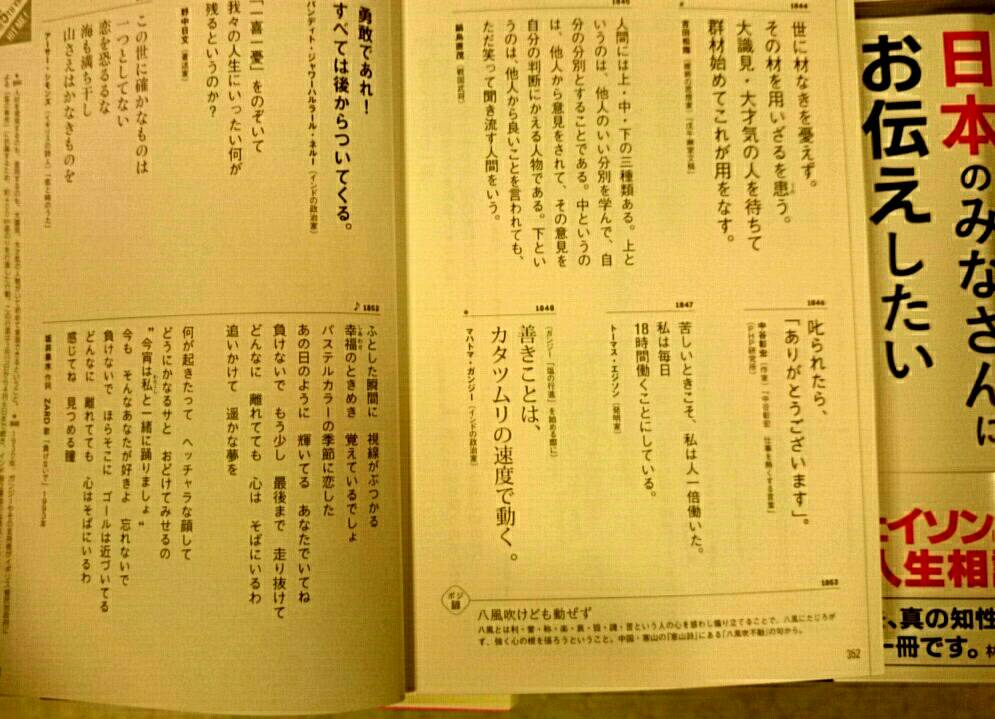 1844
世に材なきを憂えず。
その材を用いざるを患う。
大識見・大才気の人を待ちて
群材始めてこれが用をなす。
1845
人間には上・中・下の三種類ある。上と
いうのは、他人のいい分別を学んで、自
分の分別とすることである。中というの
は、他人から意見をされて、その意見を
自分の判断にかえる人物である。下とい
うのは、他人から良いことを言われても、
ただ笑って聞き流す人間をいう。
鍋島直茂(戦国武将)
1846
叱られたら、
「ありがとうございます」。
中谷彰宏(作家)『中谷彰宏 仕事を熱くする言葉』
(PHP研究所)
1847
苦しいときこそ、私は人一倍働いた。
私は毎日
18時間働くことにしている。
トーマス・エジソン(発明家)
1848
(ガンジー「塩の行進」を始める際に)
善きことは、
カタツムリの速度で動く。
マハトマ・ガンジー(インドの政治家)
1853
ポジ語録
八風吹けども動ぜず
352
勇敢であれ!
すべては後からついてくる。
パンディト・ジャワーハルラール・ネルー(インドの政治家)
「一喜一憂」をのぞいて
我々の人生にいったい何が
残るというのか?
この世に確かなものは
一つとしてない
恋を恐るるな
海も満ち干し
山さえはかなきものを
アーサー・シモンズ(イギリスの詩人)『恋と蛾のうた』
♪1852
ふとした瞬間に 視線がぶつかる
幸福のときめき 覚えているでしょ
パステルカラーの季節に恋した
あの日のように 輝いてる あなたでいてね
負けないで もう少し 最後まで 走り抜けて
どんなに 離れてても 心は そばにいるわ
追いかけて 遥かな夢を
何が起きたって ヘッチャラな顔して
どうにかなるサと おどけてみせるの
“今宵は私と一緒に踊りましょ”
今も そんなあなたが好きよ 忘れないで
負けないで ほらそこに ゴールは近づいてる
どんなに 離れてても 心はそばにいるわ
感じてね 見つめる瞳
坂井泉水 作詞 ZARD 歌「負けないで」1993年
日本のみなさんに
お伝えしたい
人生相
、真の知性
一冊です。